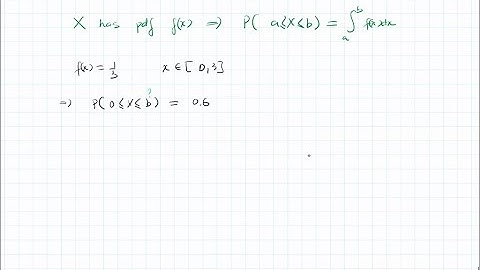 X has pdf f(x) ⇒ P( a≤X≤b) = ∫ₐᵇ f(x)dx
f(x) = 1/3 x ∈ [0,3]
⇒ P( 0≤X≤b) = 0.6
?